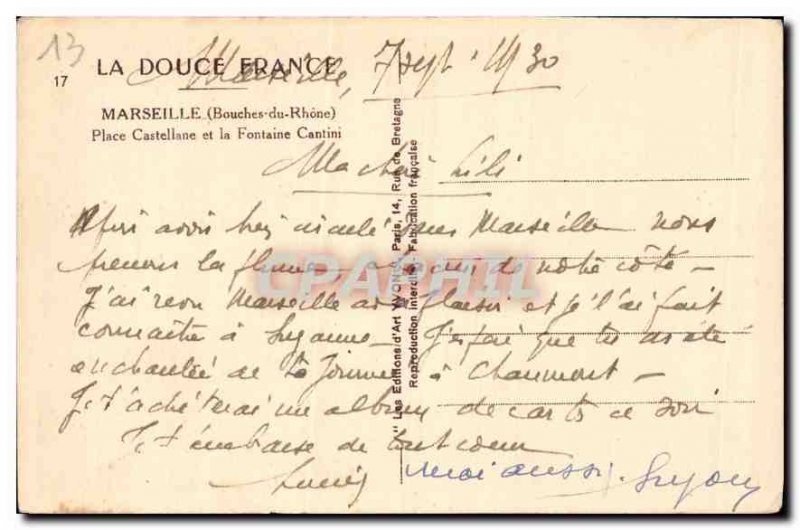 13
17
LA DOUCE FRANCE
Marseille, 7 Sept. 1930
MARSEILLE (Bouches-du-Rhône)
Place Castellane et la Fontaine Cantini
" Les Editions d'Art YVON ", Paris, 14, Rue de Bretagne
Reproduction interdite. Fabrication française
Ma chère Lili
avoir Marseille nous
prenons la plume, de notre côté -
J'ai revu Marseille avec plaisir et je l'ai fait
connaître à Suzanne - J'espère que tu as été
enchantée de ta journée à Chaumont -
Je t'achèterai un album de cartes ce soir
Je t'embrasse de tout coeur
moi aussi. Suzon
CPAPHIL